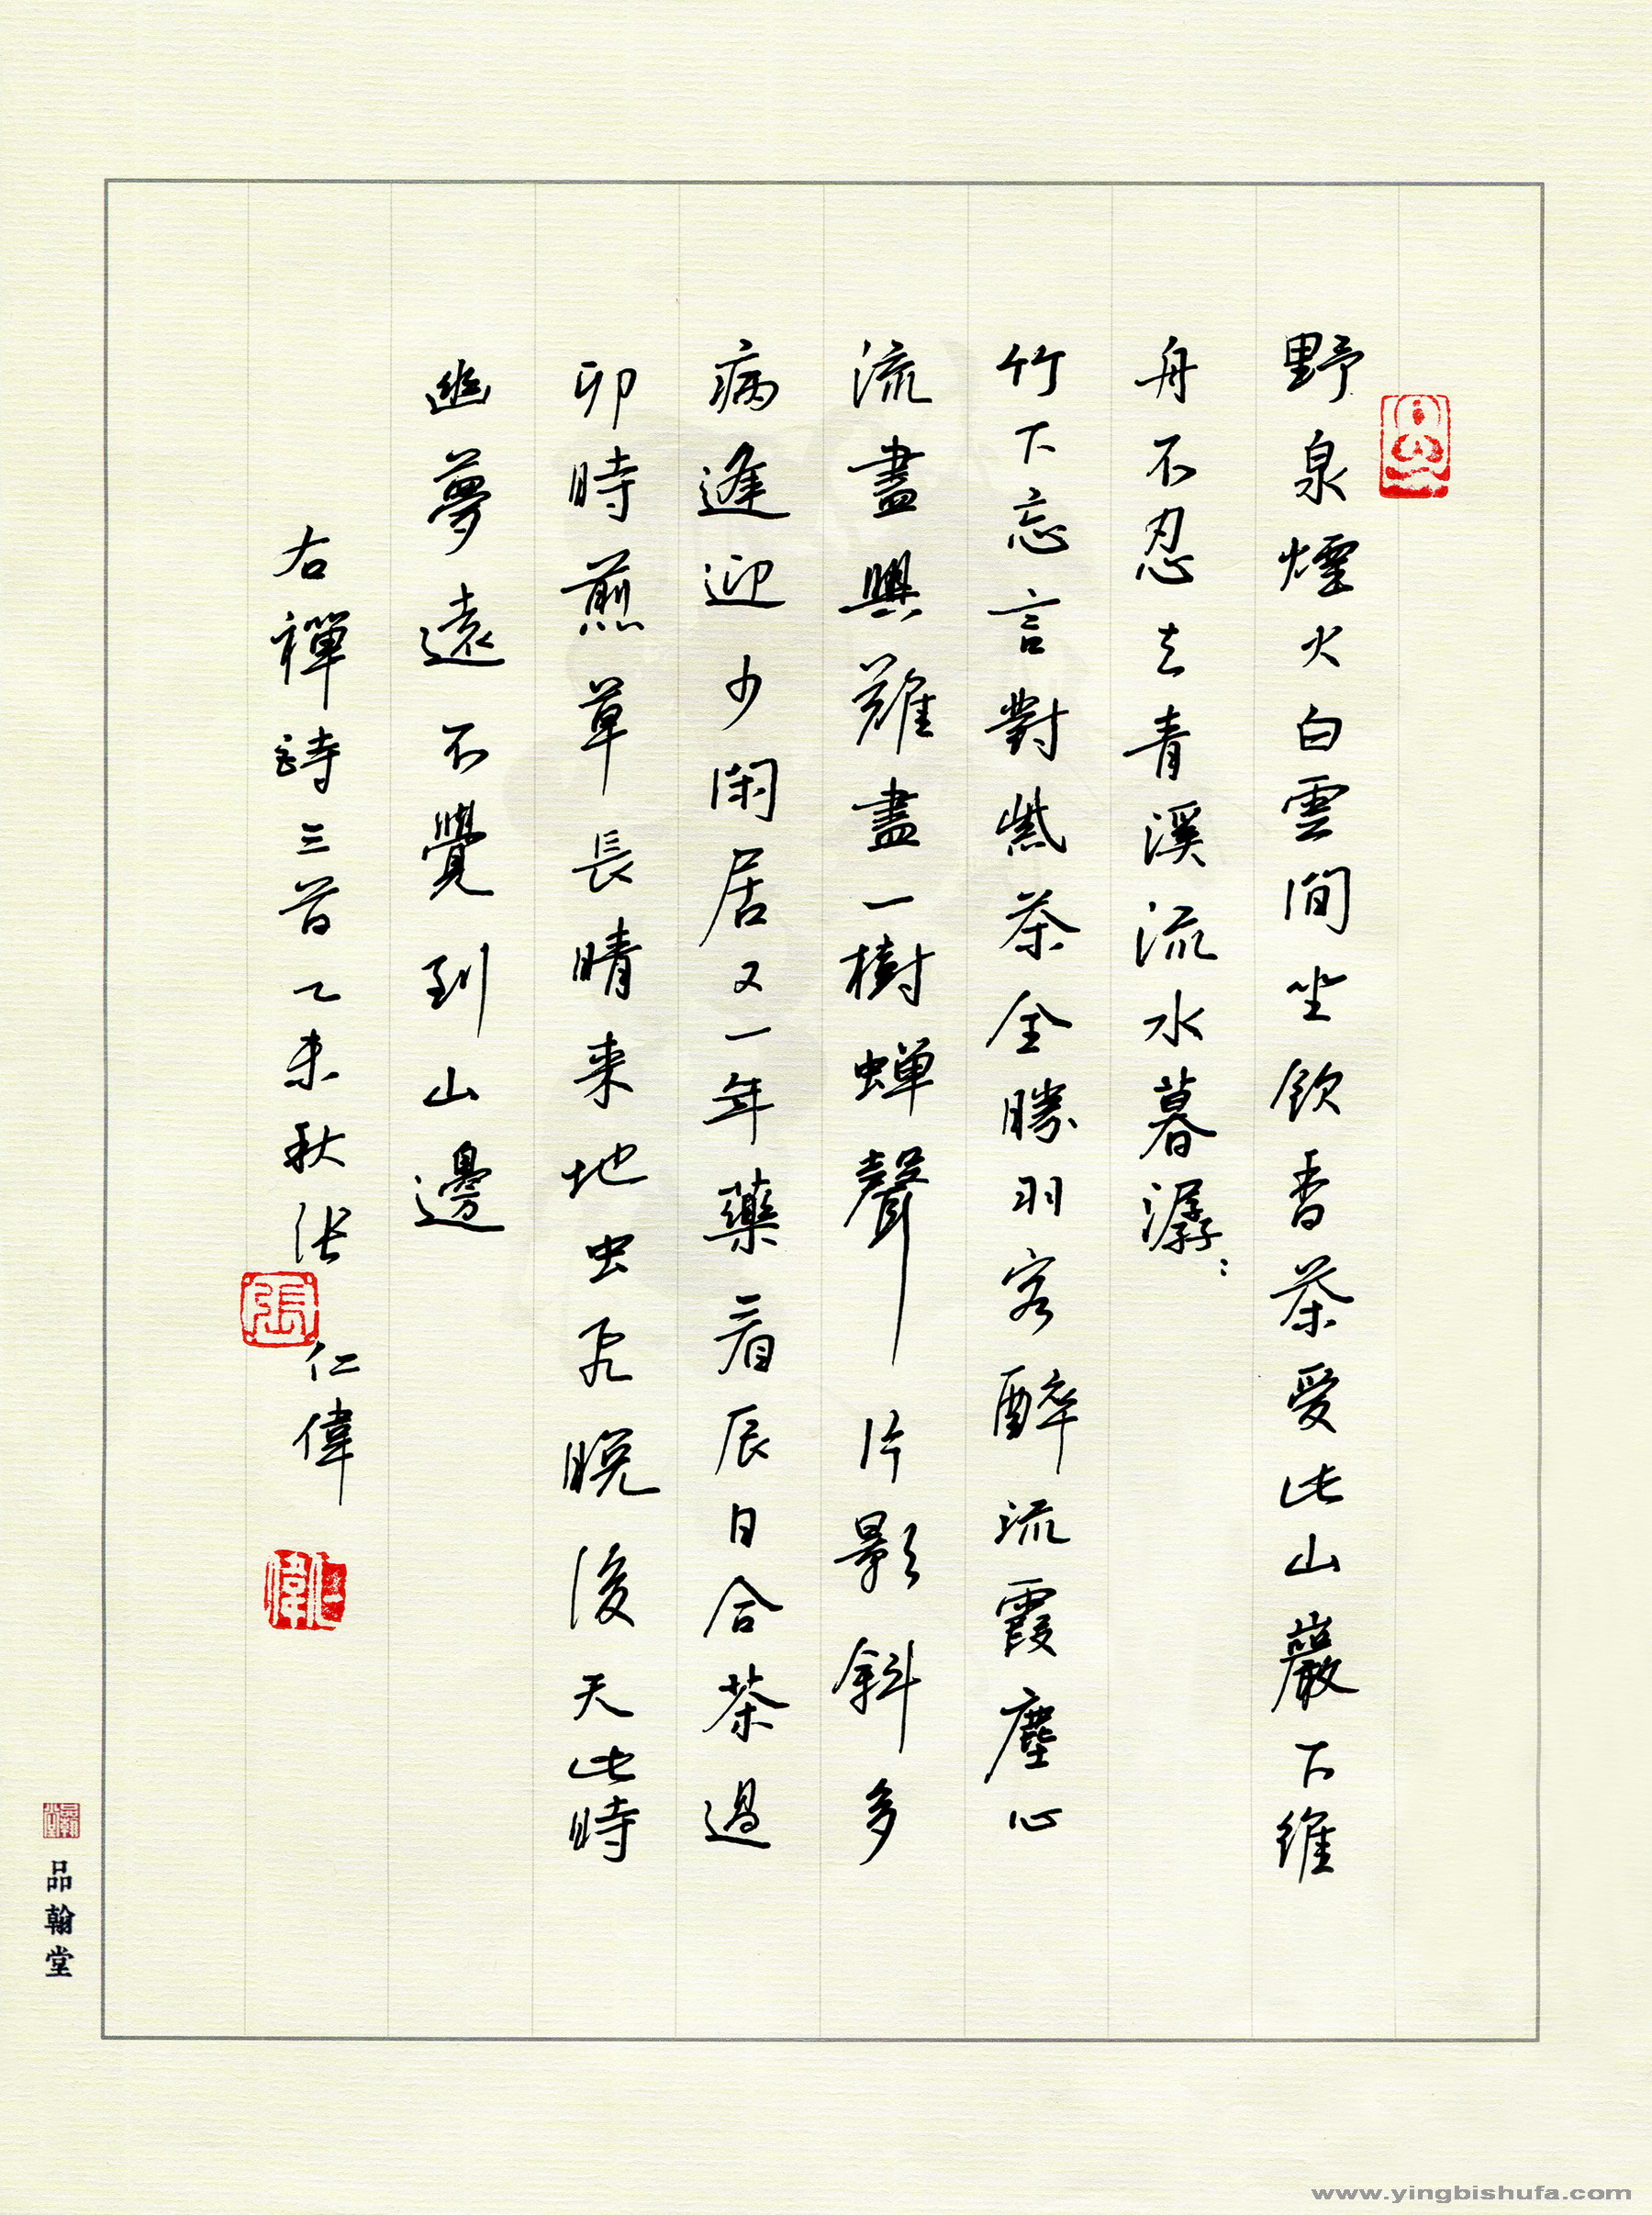 野泉煙火白雲間坐飲香茶愛此山巖下維
舟不忍去青溪流水暮潺:
竹下忘言對紫茶全勝羽客醉流霞塵心
流盡興難盡一樹蟬聲片影斜多
病逢迎少閑居又一年藥看辰日合茶過
卯時煎草長晴来地虫飛晚後天此時
幽夢遠不覺到山邊
右禪詩三首乙未秋張仁偉
張
仁偉
品翰堂
www.yingbishufa.com